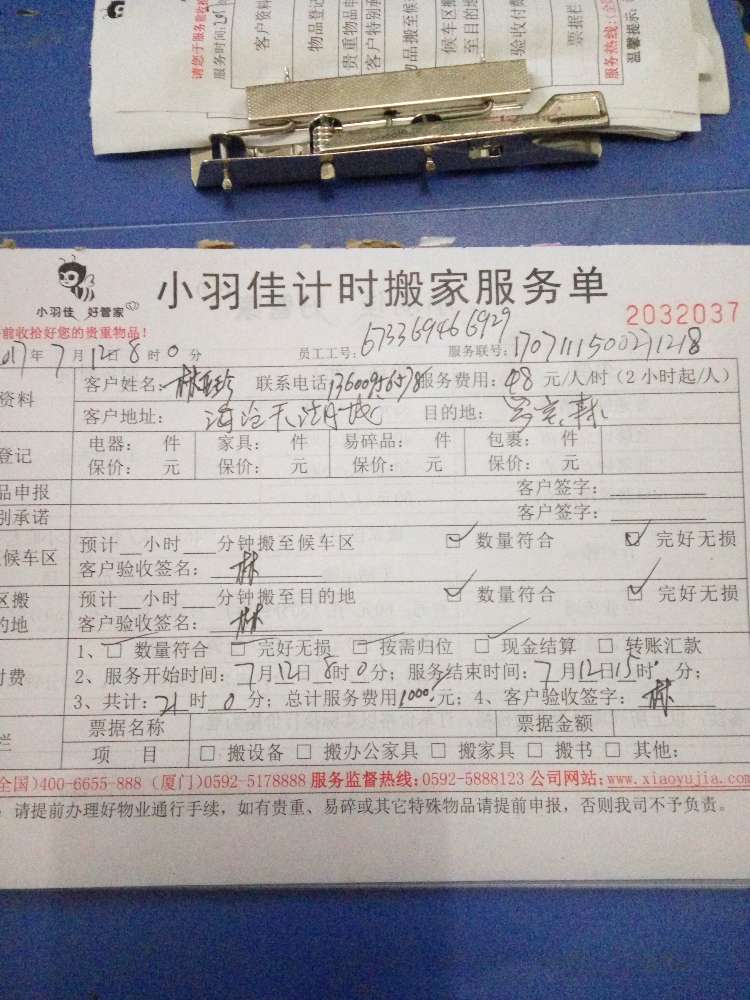 请您于服务前收
服务时间:201
客户资料
物品登记
贵重物品申
客户特别承
物品搬至候
候车区搬
至目的地
验收付费
票据栏
服务热线:(全
温馨提示:
小羽佳 好管家
小羽佳计时搬家服务单
2032037
前收拾好您的贵重物品!
017年7月12日8时0分 员工工号: 服务联号:
资料 客户姓名: 联系电话 服务费用:48元/人/时(2小时起/人)
客户地址:海沧天湖城 目的地:
登记 电器: 件 家具: 件 易碎品: 件 包裹: 件
保价: 元 保价: 元 保价: 元 保价: 元
品申报 客户签字:
别承诺 客户签字:
候车区 预计__小时___分钟搬至候车区 ☑ 数量符合 ☑ 完好无损
客户验收签名:林
区搬 预计__小时___分钟搬至目的地 ☑ 数量符合 ☑ 完好无损
的地 客户验收签名:林
1、☑ 数量符合 ☑ 完好无损 ☑ 按需归位 ☑ 现金结算 □ 转账汇款
付费 2、服务开始时间:7月12日8时0分;服务结束时间:7月12日15时 分;
3、共计:21时0分;总计服务费用1000元;4、客户验收签字:林
栏 票据名称 票据金额
项 目 □ 搬设备 □ 搬办公家具 □ 搬家具 □ 搬书 □ 其他:
全国)400-6655-888 (厦门)0592-5178888 服务监督热线:0592-5888123 公司网站:www.xiaoyujia.com
请提前办理好物业通行手续,如有贵重、易碎或其它特殊物品请提前申报,否则我司不予负责。